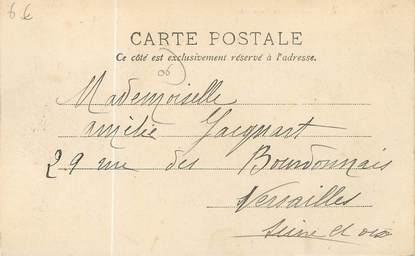 6 €
CARTE POSTALE
Ce côté est exclusivement réservé à l'adresse.
Mademoiselle
Amélie Jacquart
29 rue des Bourdonnais
Versailles
Seine et oise